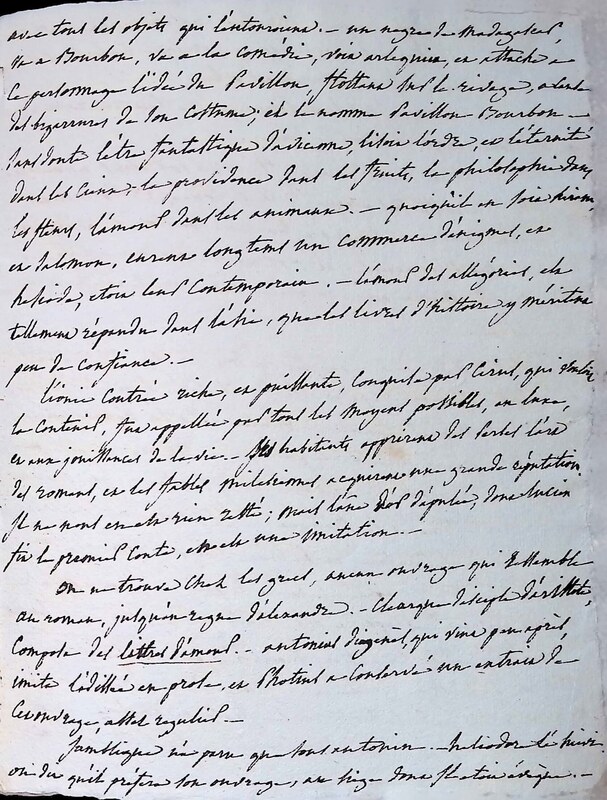 avec tous les objets qui l'entourions. — un negre de Madagascar,
va a Bourbon, va a la comédie, voit arlequin, en attache a
ce personnage l'idée du Pavillon, flottant sur le rivage, a cause
des bizarrures de son costume; et le nomme Pavillon Bourbon —
sans doute l'être fantastique d'avicenne, lisoit l'ordre, et l'éternité
dans les Cieux, la providence dans les fruits, la philosophie dans
les fleurs, l'amour dans les animaux. — quoiqu'il en soit hirom,
et Salomon, eurent longtems un commerce d'énigmes, et
hesiode, etoit leur Contemporain. — l'amour des allégories, est
tellement répandu dans l'asie, que les livres d'histoire y méritent
peu de confiance. —
l'ionie contrée riche, et puissante, conquise par Cirus, qui vouloit
la contenir, fut appellée par tous les moyens possibles, au luxe,
et aux jouissances de la vie. — Ses habitants apprirent des Perses l'art
des romans, et les fables milesiennes acquirent une grande réputation.
Il ne nous en est rien resté; mais l'âne d'apulée, dont lucien
fit le premier conte, en est une imitation. —
On ne trouve chez les grecs, aucun ouvrage qui ressemble
au roman, jusqu'au regne d'alexandre. — Clearque disciple d'aristote,
Composa des lettres d'amour. — antonius diogenes, qui vint peu après,
imita l'odissée en prose, et Photius a conservé un extrait de
cet ouvrage, assez regulier. —
Jamblique n'a paru que sous antonin. — heliodore le suivit
on dit qu'il préfera son ouvrage, au siege dont il etoit évêque. —